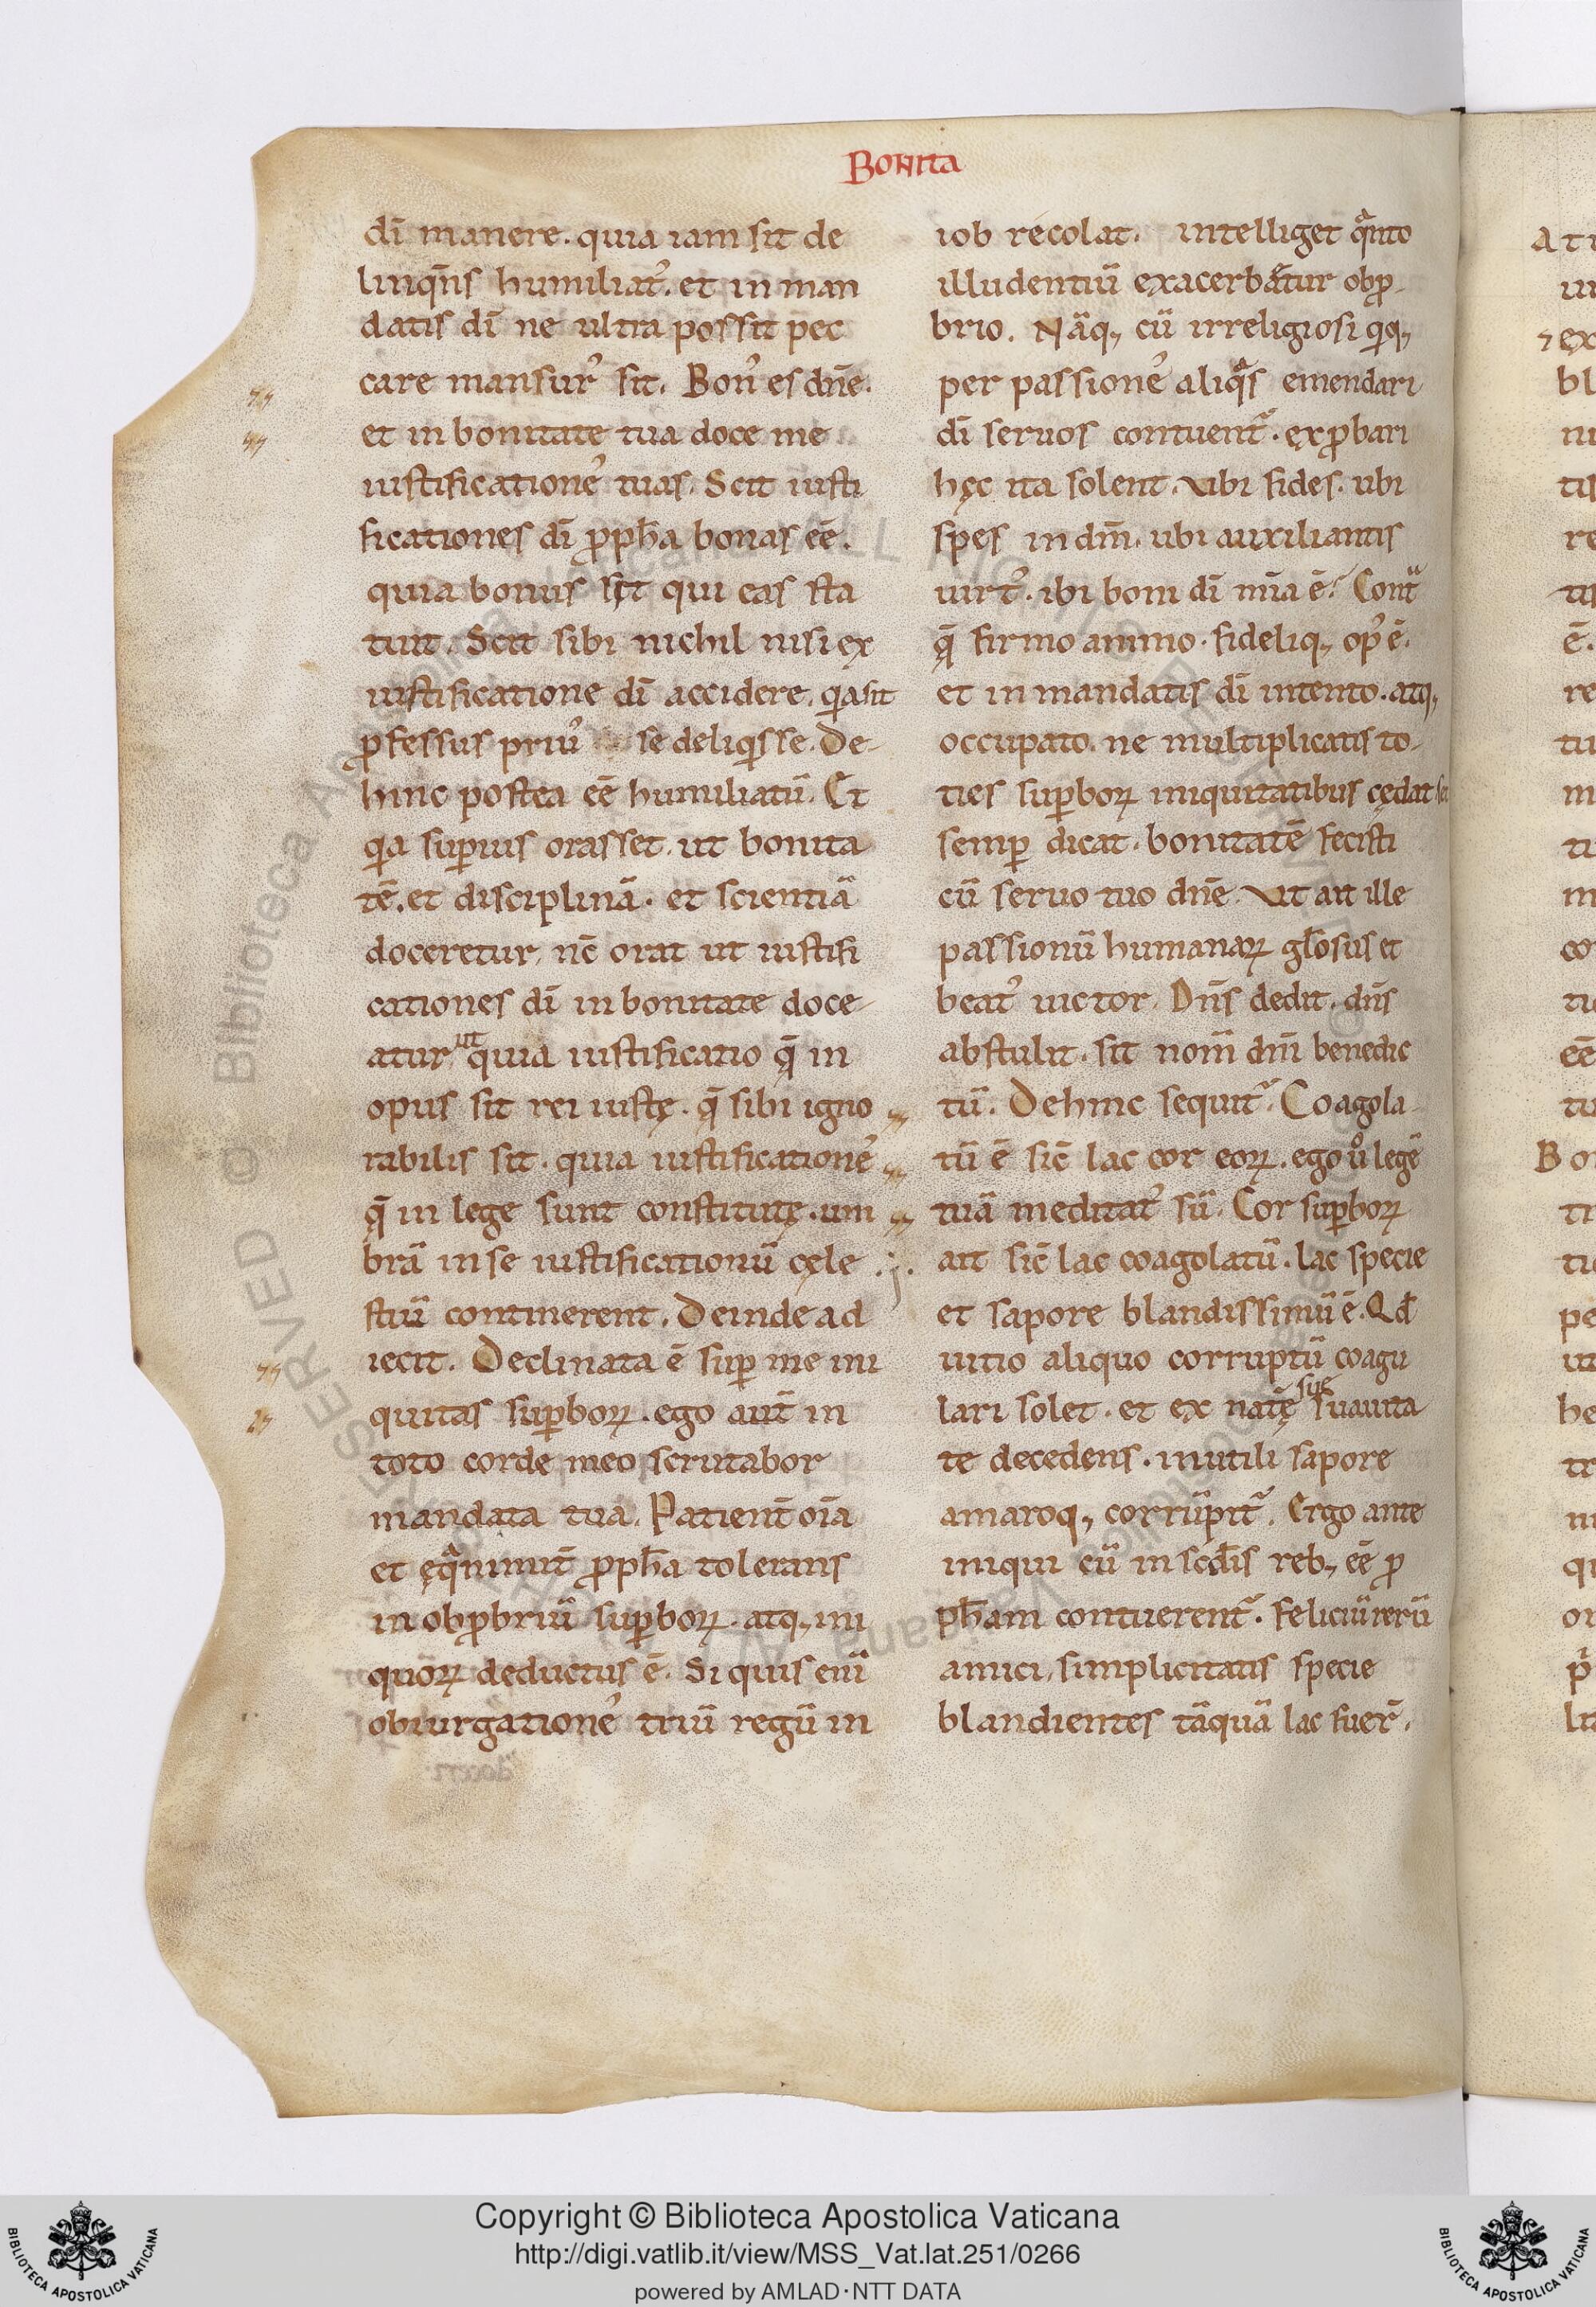 Bonita
dī manere. quia iam sit de
linqn̄s humiliat᾽. et in man
datis dī ne ultra possit pec
care mansur᾽ sit. Bon᾽ es dn̄e.
et in bonitate tua doce me
iustificatione᾽ tuas. Scit iusti
ficationes dī ꝓph̄a bonas eē.
quia bonus sit qui eas sta
tuit. Scit sibi nichil nisi ex
iustificatione dī accidere. qia sit
ꝓfessus priu᾽ se deliqisse. De-
hinc postea eē humiliatū. Et
qia suꝑius orasset. ut bonita
tē. et disciplinā. et scientiā
doceretur. nc̄ orat ut iustifi
cationes dī in bonitate doce-
atur. ut quia iustificatio q̨̄ in
opus sit rei iustę. q̨̄ sibi igno
rabilis sit. quia iustificatione᾽
q̨̄ in lege sunt constitutę. um
brā in se iustificationū cęle
stiū continerent. Deinde ad
iecit. Declinata ē suꝑ me ini
quitas suꝑboꝝ. ego aut̄ in
toto corde meo scrutabor
mandata tua. Patient̄ oīa
et ęqͣnimit̄ ꝓph̄a tolerans
in obꝓbriū suꝑboꝝ. atq, ini
quoꝝ deductus ē. Si quis enī
obiurgatione᾽ triū regū in
iob recolat. intelliget qͣnto
illudentiū exacerbatur obꝓ-
brio. Nāq, cū irreligiosi qiq,
per passione᾽ aliqͣs emendari
dī seruos contuent᷑. exꝓbari
hęc ita solent. Vbi fides. ubi
spes in dm̄. ubi auxiliantis
uirt᾽. ibi boni dī mīa ē? Contͣ
q̨̄ firmo animo. fideliq, op᾽ ē.
et in mandatis dī intento. atq,
occupato. ne multiplicatis to-
ties suꝑboꝝ iniquitatibus cędat
semꝑ dicat. bonitatē fecisti
cū seruo tuo dn̄e. Vt ait ille
passionū humanaꝝ gl̄osus et
beat᾽ uictor. Dn̄s dedit. dn̄s
abstulit. sit nom̄ dn̄i benedic
tū. Dehinc sequit᷑. Coagola-
tū ē sic̄ lac cor eoꝝ. ego uͦ legē
tuā meditat᾽ sū. Cor suꝑboꝝ
ait sic̄ lac coagolatū. lac specie
et sapore blandissimū ē. Qd̄
uitio aliquo corruptū coagu
lari solet. et ex nat̄ę suę suauita
te decedens. inutili sapore
amaroq, corrūpit᷑. Ergo ante
iniqui cū in scd̄is reb, eē ꝓ
ph̄am contuerent᷑. feliciū rerū
amici. simplicitatis specie
blandientes tāquā lac fuer̄.
doceri
Copyright © Biblioteca Apostolica Vaticana
http://digi.vatlib.it/view/MSS_Vat.lat.251/0266
powered by AMLAD·NTT DATA